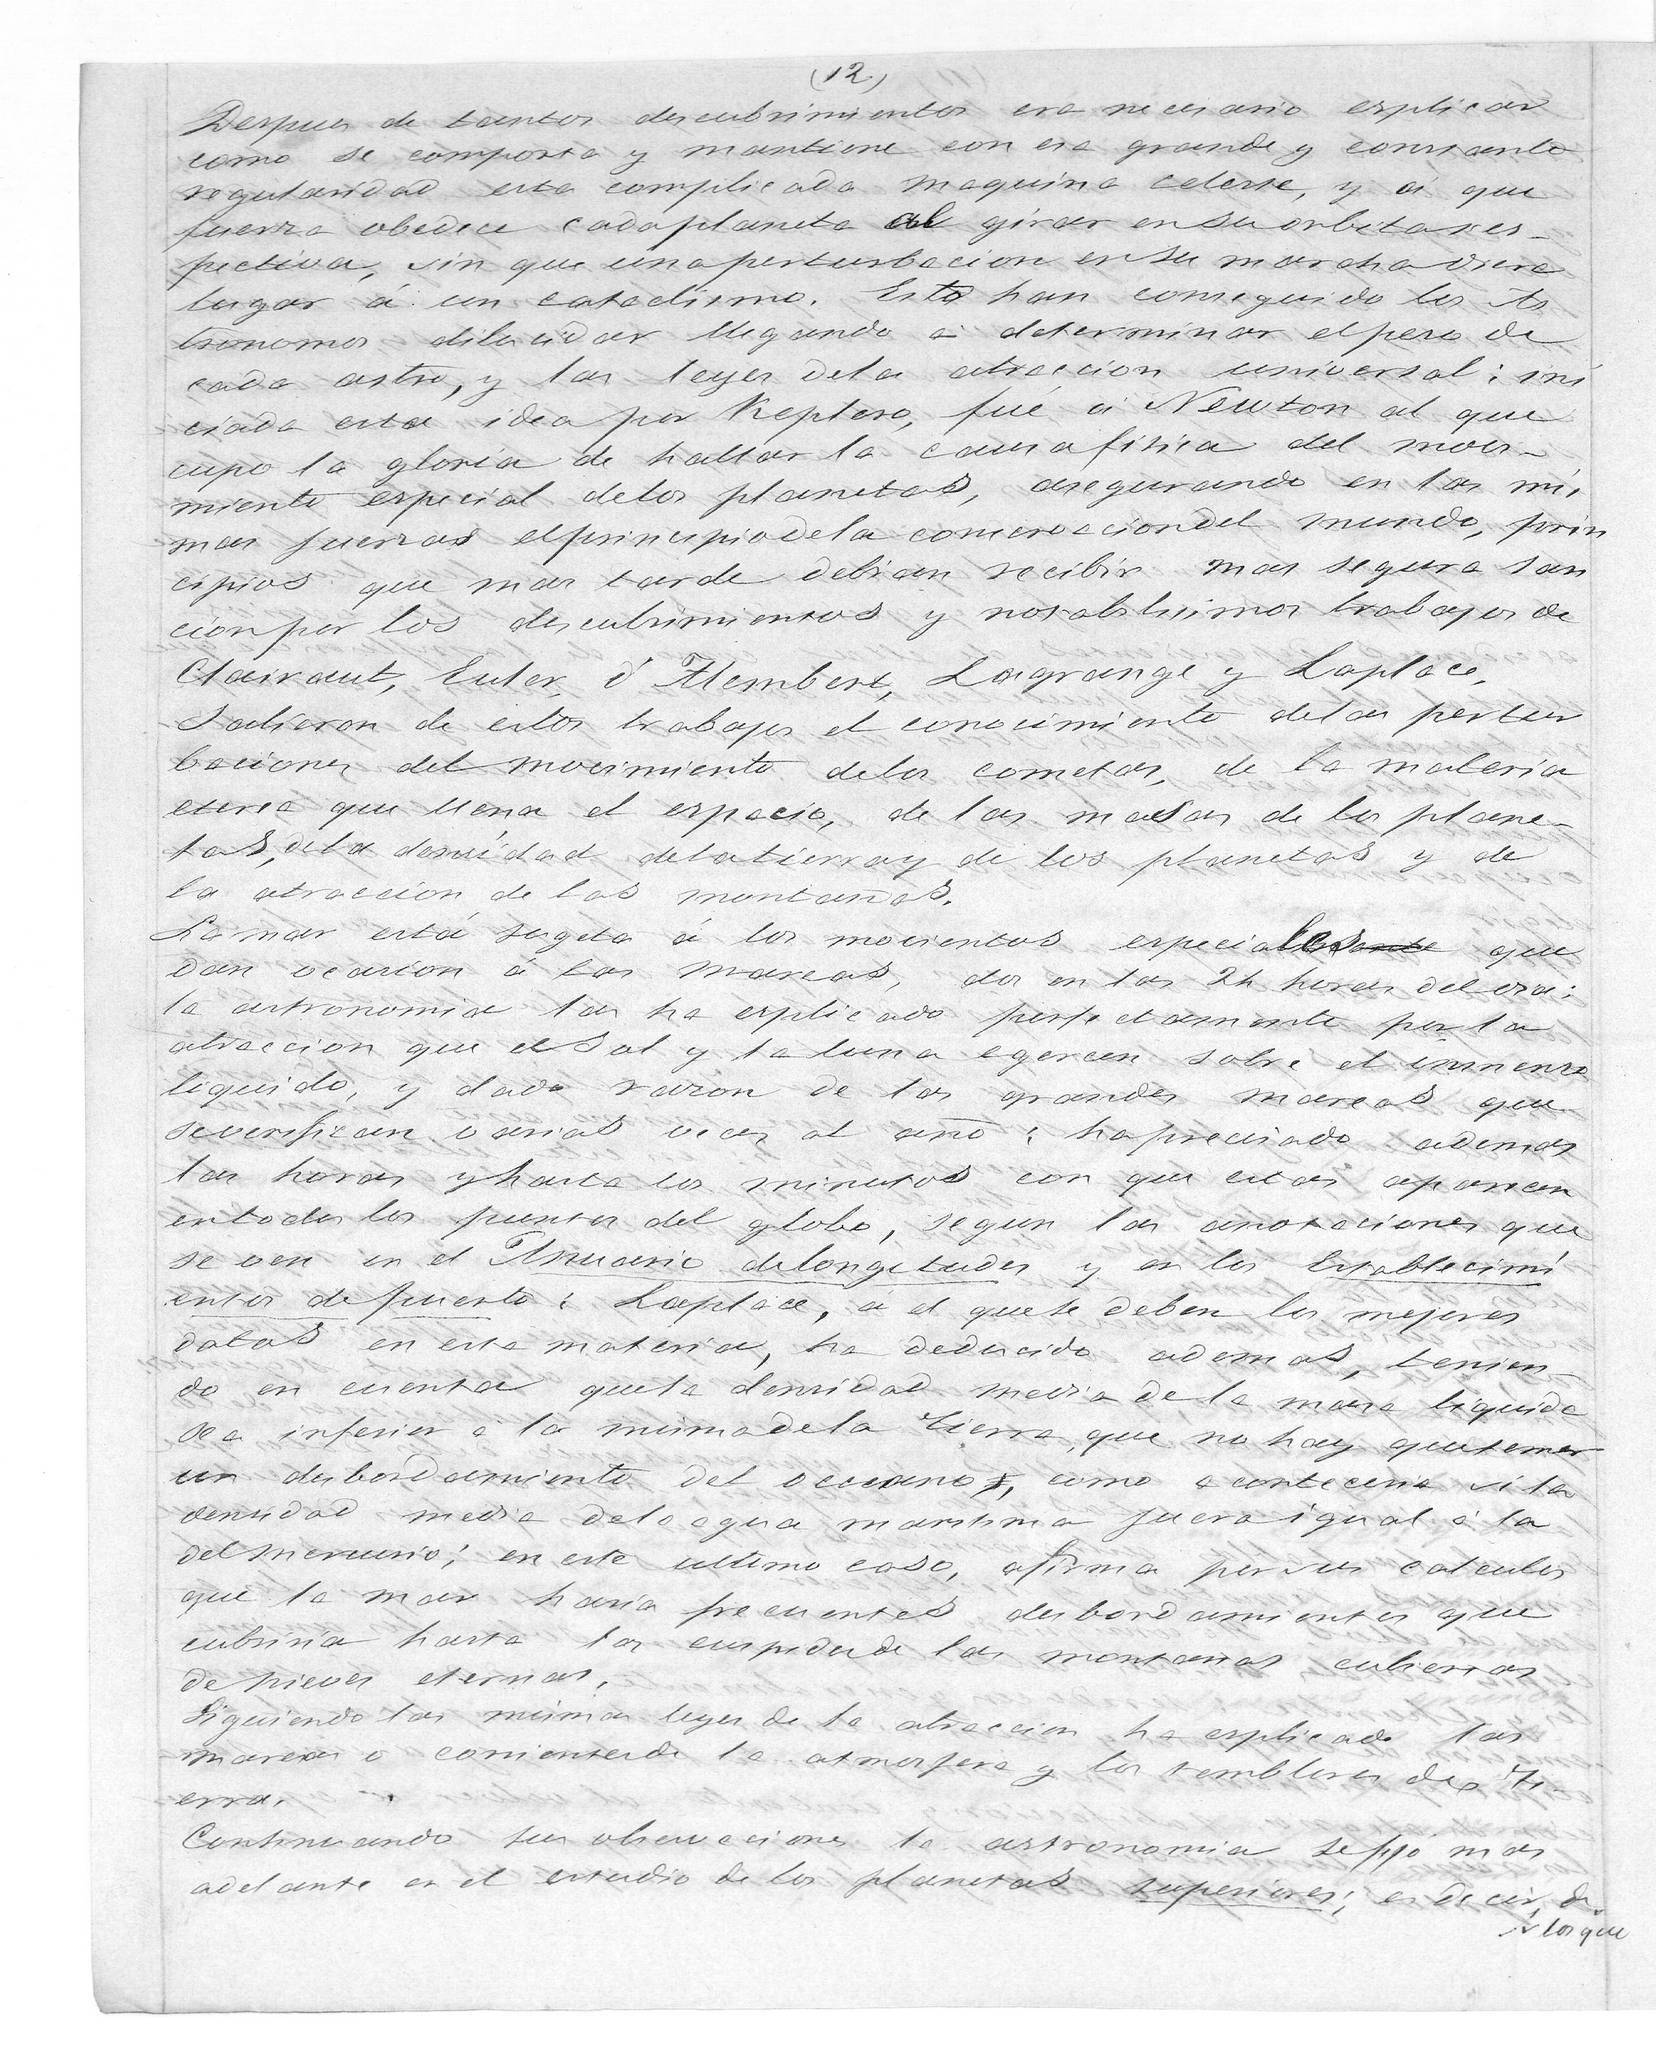 (12)
Despues de tantos descubrimientos era necesario esplicar
como se comporta y mantiene con esa grande y constante
regularidad esta complicada maquina celeste, y á que
fuerza obedece cada planeta al girar en su orbita res-
pectiva, sin que una perturbacion en su marcha diera
lugar á un cataclismo. Esto han conseguido los As
tronomos dilucidar llegando á determinar el peso de
cada astro, y las leyes de la atraccion universal: ini
ciada esta idea por Keplero, fué á Newton al que
cupo la gloria de hallar la causa fisica del movi-
miento especial de los planetas, asegurando en las mis
mas fuerzas el principio de la conservacion del mundo, prin
cipios que mas tarde debian recibir mas segura san
cion por los descubrimientos y notabilisimos trabajos de
Clairaut, Euler, d'Alembert, Lagrange y Laplace.
Salieron de estos trabajos el conocimiento de las pertur
baciones del movimiento de los cometas, de la materia
eterea que llena el espacio, de las masas de los plane-
tas, de la densidad de la tierra y de los planetas y de
la atraccion de las montañas.
La mar está sugeta á los movientos especiales que
dan ocasion á las mareas, dos en las 24 horas del dia:
la astronomia las ha esplicado perfectamente por la
atraccion que el Sol y la luna egercen sobre el inmenso
liquido, y dado razon de las grandes mareas que
se verifican varias veces al año: ha preciado ademas
las horas y hasta los minutos con que estas aparecen
en todos los puntos del globo, segun las anotaciones que
se ven en el Anuario de longitudes y en los Establecimi
entos de puerto: Laplace, á el que se deben los mejores
datos en esta materia, ha deducido ademas, tenien-
do en cuenta que la densidad media de la masa liquida
sea inferior á la misma de la Tierra, que no hay que temer
un desbordamiento del occeano, como aconteceria si la
densidad media del agua maritima fuera igual á la
del mercurio; en este ultimo caso, afirma por sus calculos
que la mar haria frecuentes desbordamientos que
cubriria hasta las cuspides de las montañas cubiertas
de nieves eternas.
Siguiendo las mismas leyes de la atraccion ha esplicado las
mareas o corrientes de la atmosfera y los temblores de Ti-
erra.
Continuando sus observaciones la astronomia se fijó mas
adelante en el estudio de los planetas superiores; es decir, de
los que